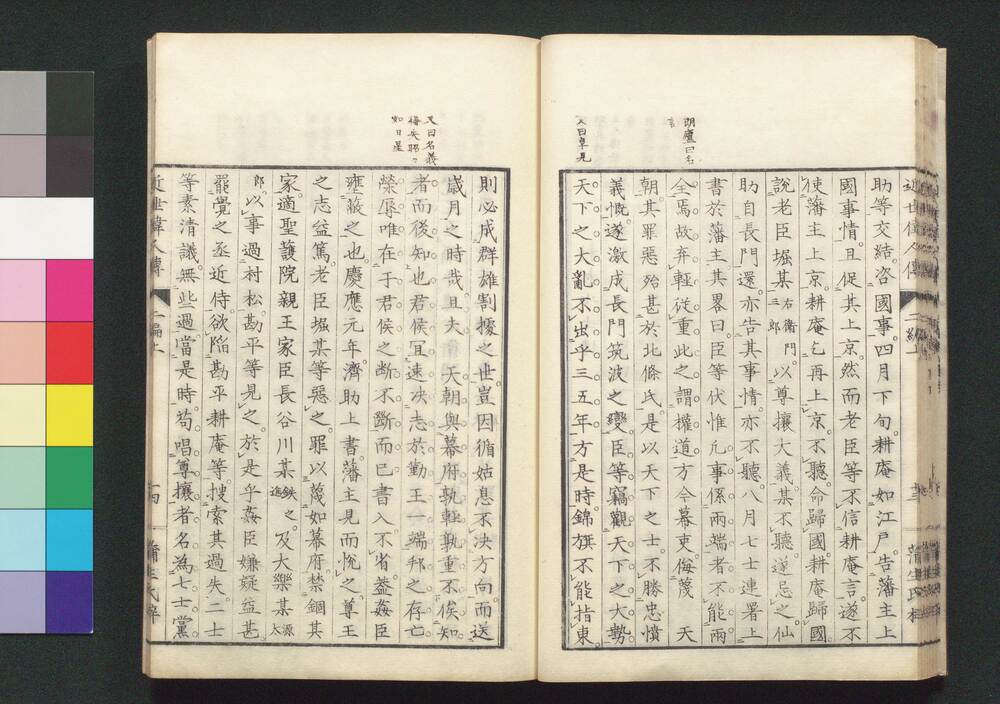 胡廬曰名
言
又曰卓見
近世偉人傳
助等交結。咨國事。四月下旬。耕庵如江戸。告藩主上
國事情。且促其上京。然而老臣等不信耕庵言。遂不
使藩主上京。耕庵乞再上京。不聽。命歸國。耕庵歸國。
說老臣堀某右衛門三郎。以尊攘大義。某不聽。遂忌之。仙
助自長門還。亦告其事情。亦不聽。八月七士連署上
書於藩主。其畧曰。臣等伏惟凡事係兩端者。不能兩
全焉。故弃輕從重。此之謂權道。方今幕吏侮蔑 天
朝。其罪惡殆甚於北條氏。是以天下之士。不勝忠憤
義慨。遂激成長門筑波之變。臣等竊觀天下之大勢。
天下之大亂。不出乎三五年。方是時。錦旗不能指東。
又曰名義
條失昭々
如日星
則必成群雄割據之世。豈因循姑息。不決方向。而送
歲月之時哉。且夫 天朝與幕府。孰輕孰重。不俟知
者而後知也。君侯冝速决志於勤王一端。邦之存亡
榮辱。唯在于君侯之斷不斷而已。書入。不省。葢姦臣
壅蔽之也。慶應元年。濟助上書。藩主見而悅之。尊王
之志益篤。老臣堀某等惡之。罪以蔑如幕府。禁錮其
家。適聖護院親王家臣長谷川某鉄之進。及大樂某源太
郎。以事過村松。勘平等見之。於是乎姦臣嫌疑益甚。
罷覺之丞近侍。欲陷勘平耕庵等。搜索其過失。二士
等素清議。無些過。當是時。苟唱尊攘者。名為七士黨。
近世偉人傳 二編上 蒲生氏梓